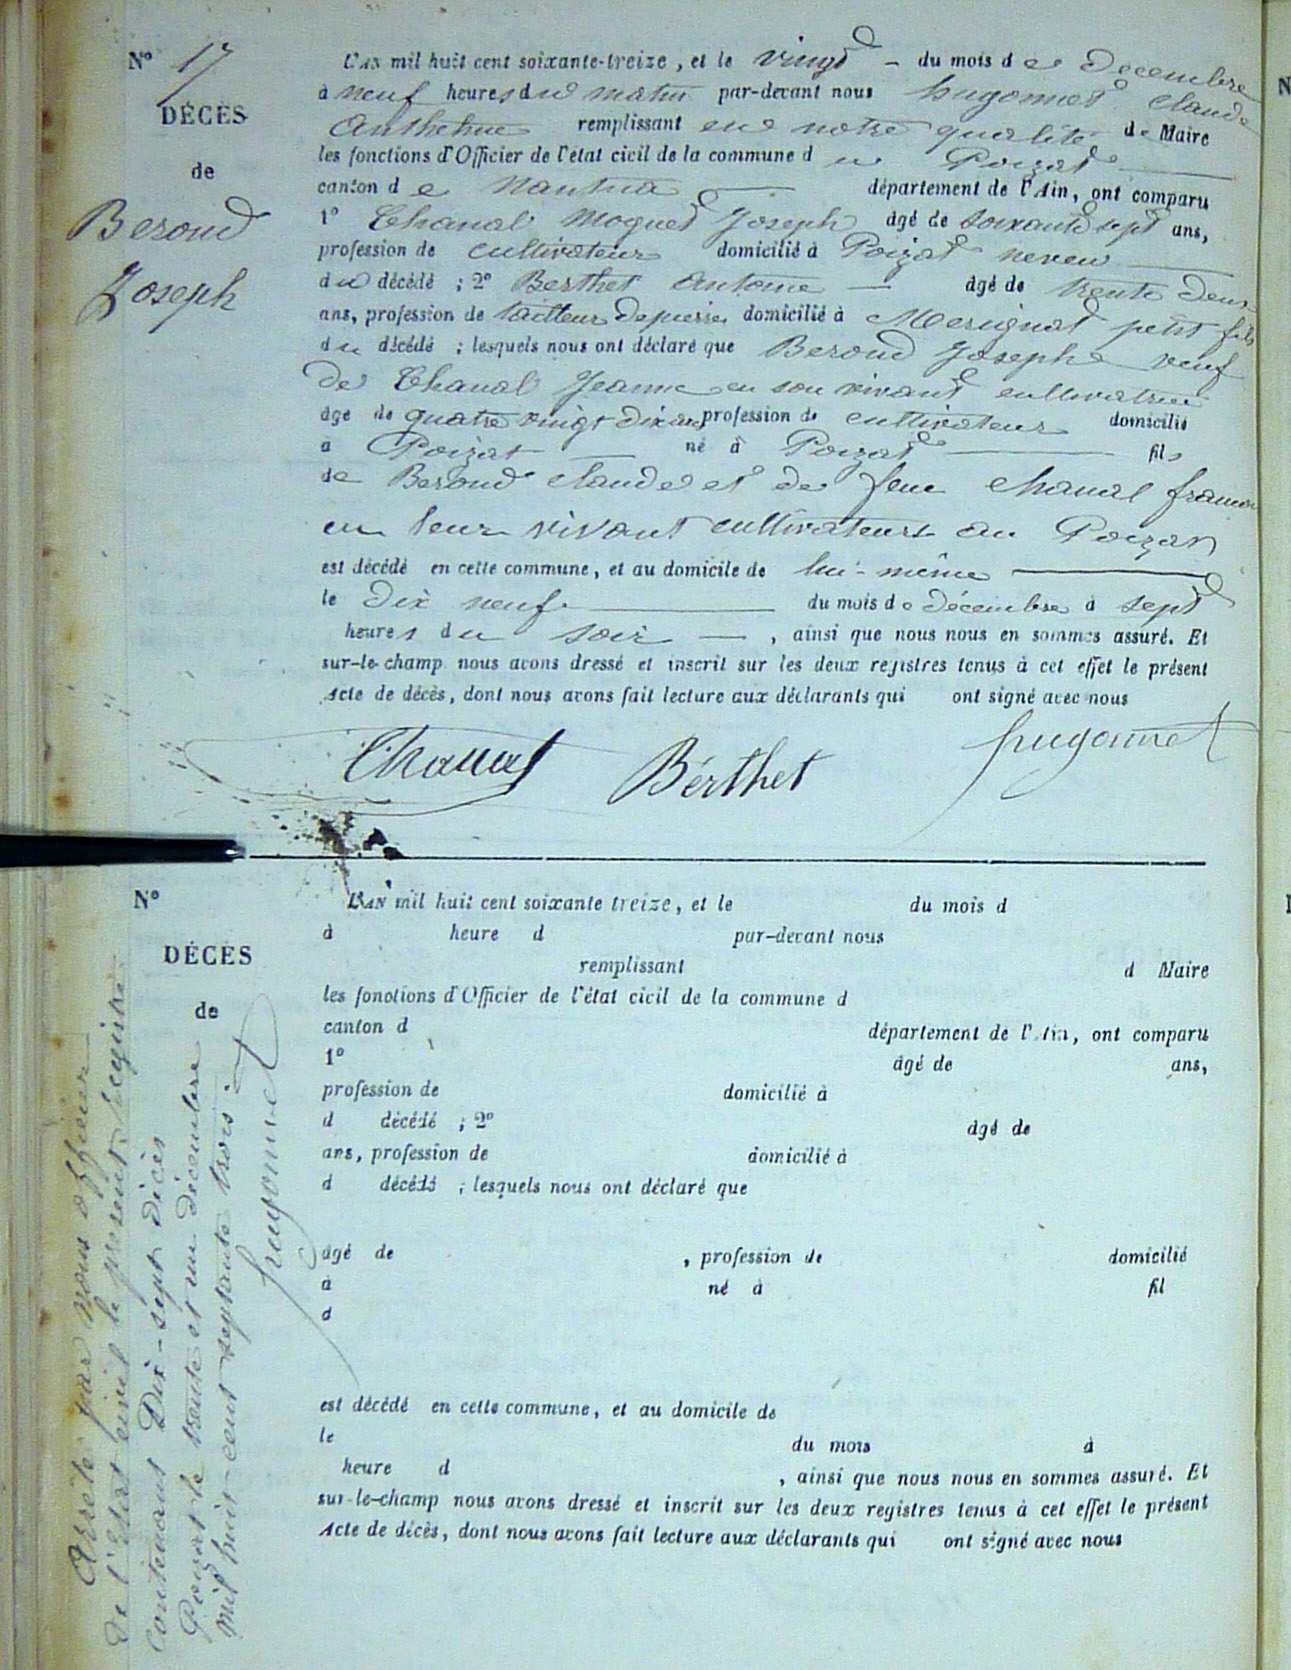 N° 17
DÉCÈS
de
Beroud
Joseph
L'AN mil huit cent soixante-treize, et le vingt du mois de Decembre
à neuf heures du matin par-devant nous hugonnet Claude
Anthelme remplissant en notre qualité de Maire
les fonctions d'Officier de l'état civil de la commune du Poizat
canton de Nantua département de l'Ain, ont comparu
1° Chanal Moquet Joseph âgé de soixante sept ans,
profession de cultivateur domicilié à Poizat neveu
du décédé ; 2° Berthet Antoine âgé de trente deux
ans, profession de tailleur de pierre domicilié à Merignat petit fils
du décédé ; lesquels nous ont déclaré que Beroud Joseph veuf
de Chanal Jeanne en son vivant cultivatrice
âgé de quatre vingt dix ans profession de cultivateur domicilié
à Poizat né à Poizat fils
de Beroud Claude et de feue Chanal
en leur vivant cultivateurs au Poizat
est décédé en cette commune, et au domicile de lui-même
le dix neuf du mois de décembre à sept
heures du soir, ainsi que nous nous en sommes assuré. Et
sur-le-champ nous avons dressé et inscrit sur les deux registres tenus à cet effet le présent
Acte de décès, dont nous avons fait lecture aux déclarants qui ont signé avec nous
Chanal Bérthet hugonnet
N°
DÉCÈS
de
L'AN mil huit cent soixante treize, et le du mois d
à heure d par-devant nous
remplissant d Maire
les fonctions d'Officier de l'état civil de la commune d
canton d département de l'Ain, ont comparu
1° âgé de ans,
profession de domicilié à
d décédé ; 2° âgé de
ans, profession de domicilié à
d décédé ; lesquels nous ont déclaré que
âgé de , profession de domicilié
à né à fil
d
est décédé en cette commune, et au domicile de
le du mois à
heure d , ainsi que nous nous en sommes assuré. Et
sur-le-champ nous avons dressé et inscrit sur les deux registres tenus à cet effet le présent
Acte de décès, dont nous avons fait lecture aux déclarants qui ont signé avec nous
Arrêté par nous officier
de l'Etat civil le présent registre
contenant Dix-sept décès
Poizat le trente et un décembre
mil huit cent septante trois
hugonnet